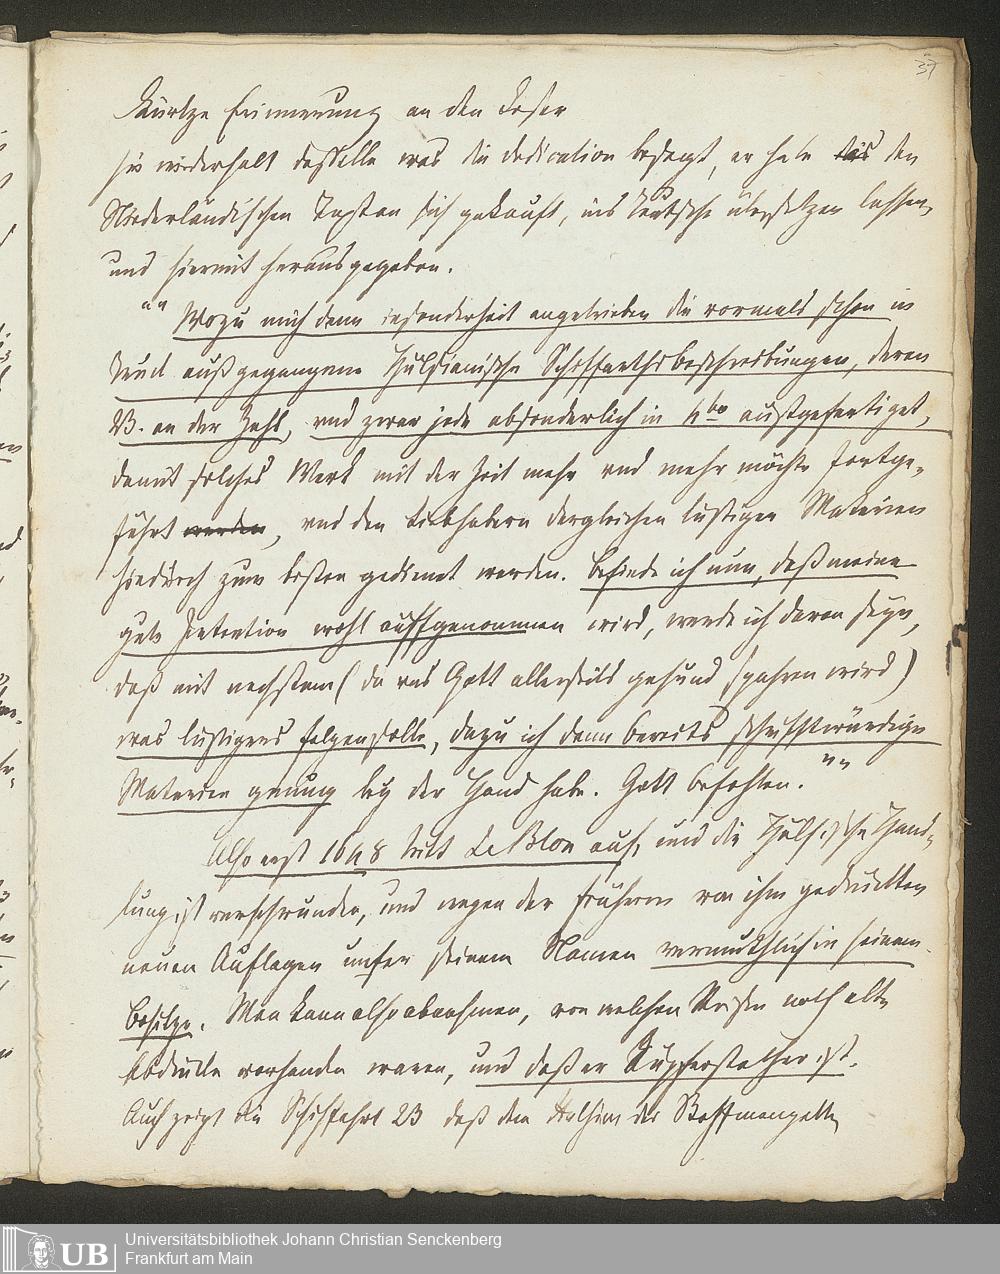 37
Kurtze Erinnerung an den Leser
hie wiederholt dasselbe was die dedication besagt, er habe das den
Niederländischen Texten sich gekauft, ins deutsche übersetzen lassen,
und hiermit herausgegeben.
"" Wozu mich dann insonderheit angetrieben die vormals schon in
Truck außgegangene Hulsianische Schiffarthsbeschreibungen, deren
23. an der Zahl, vnd zwar jede absonderlich in 4to außgefertiget,
damit solches Werk mit der Zeit mehr vnd mehr möchte fortge-
führt werden, vnd den Liebhabern dergleichen lustigen Materien
hiedurch zum besten gedienet werden. Befinde ich nun, daß meine
gute Intention wohl auffgenommen wird, werde ich daran seyn,
daß mit nechstem (da uns Gott allerseits gesund spahren wird)
was lustigers folgen solle, dazu ich dann bereits schrifftwürdige
Materien genung bey der Hand habe. Gott befohlen. ""
Also erst 1648 tritt Le Blon auf, und die Hulsische Hand-
lung ist verschwunden, und wegen der früheren von ihm gedruckten
neuen Auflagen unter seinem Namen vermuthlich in seinem
Besitze. Man kann also abnehmen, von welchen Reisen noch alte
Abdrücke vorhanden waren, und daß er Kupferstecher ist.
Auch zeigt die Schiffahrt 23 daß dem der Stoff mangelte
Universitätsbibliothek Johann Christian Senckenberg
Frankfurt am Main
UB